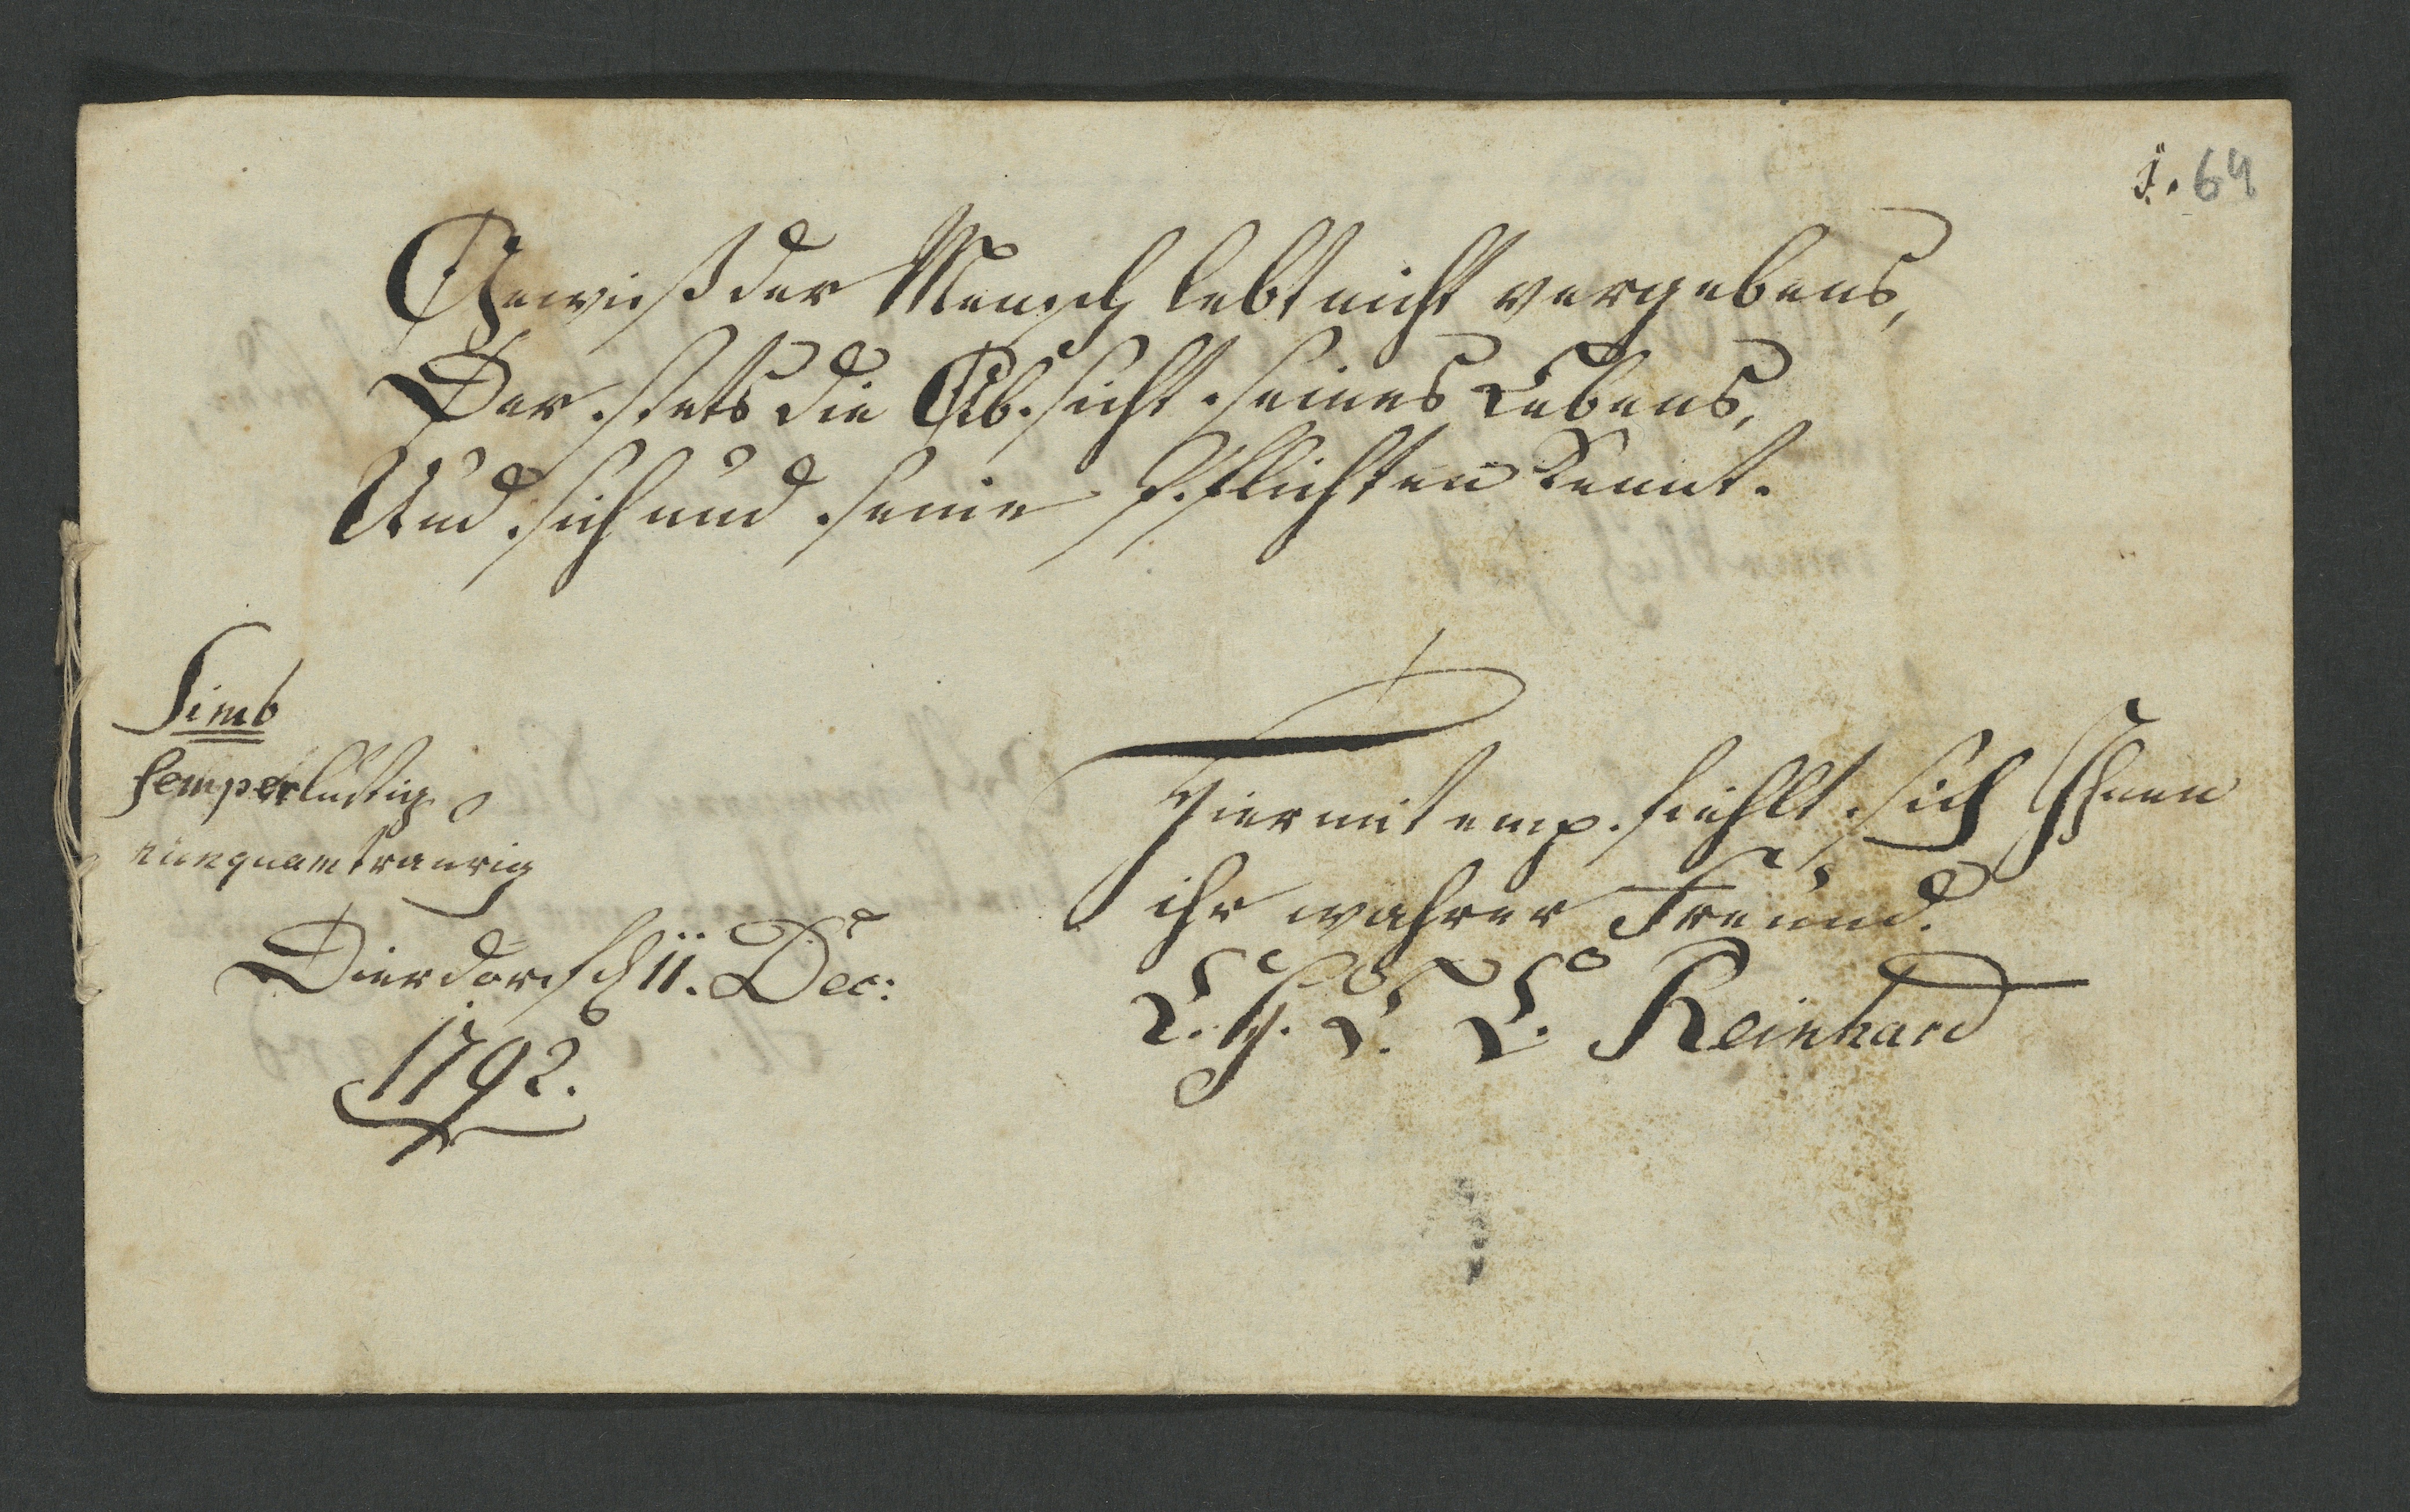 1. 64
Gewiß der Mensch lebt nicht vergebens,
Der stets die Absicht seines Lebens,
Und sich und seine Pflichten kennt.
Simb
semper lustig
nunquam traurig
Dierdorf d 11. Dec:
1792.
Hiermit empfiehlt sich Ihnen
ihr wahrer Freund.
L. H. L. L. Reinhard